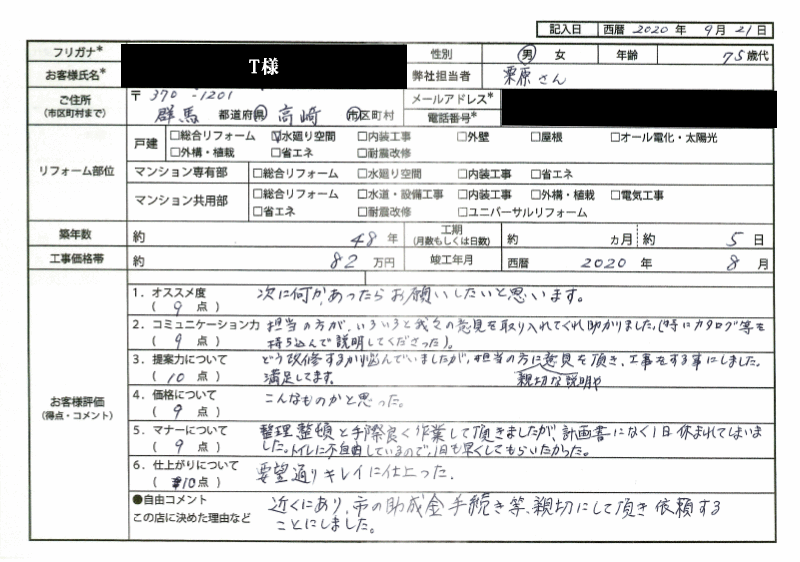 記入日 西暦 2020 年 9月 21日
フリガナ* T様 性別 男 女 年齢 75歳代
お客様氏名* 弊社担当者 栗原さん
ご住所 (市区町村まで) 〒370-1201 メールアドレス*
群馬 都道府県 高崎 市区町村 電話番号*
リフォーム部位
戸建 □総合リフォーム ☑水廻り空間 □内装工事 □外壁 □屋根 □オール電化・太陽光
□外構・植栽 □省エネ □耐震改修
マンション専有部 □総合リフォーム □水廻り空間 □内装工事 □省エネ
マンション共用部 □総合リフォーム □水道・設備工事 □内装工事 □外構・植栽 □電気工事
□省エネ □耐震改修 □ユニバーサルリフォーム
築年数 約 48年 工期 (月数もしくは日数) 約 カ月 約 5日
工事価格帯 約 82 万円 竣工年月 西暦 2020 年 8月
お客様評価 (得点・コメント)
1. オススメ度 ( 9 点 ) 次に何か、あったらお願いしたいと思います。
2. コミュニケーション力 ( 9 点 ) 担当の方が、いろいろと我々の意見を取り入れてくれ助かりました。(特にカタログ等を
持ち込んで説明してくださった)。
3. 提案力について ( 10 点 ) どう改修するか悩んでいましたが、担当の方に意見を頂き、工事をする事にしました。
満足してます。 親切な説明や
4. 価格について ( 9 点 ) こんなものかと思った。
5. マナーについて ( 9 点 ) 整理整頓と手際良く作業して頂きましたが、計画書になく1日休まれてしまいま
した。トイレに不自由しているので、1日も早くしてもらいたかった。
6. 仕上がりについて ( 10点 ) 要望通りキレイに仕上った.
●自由コメント
この店に決めた理由など
近くにあり、市の助成金手続き等、親切にして頂き依頼する
ことにしました。